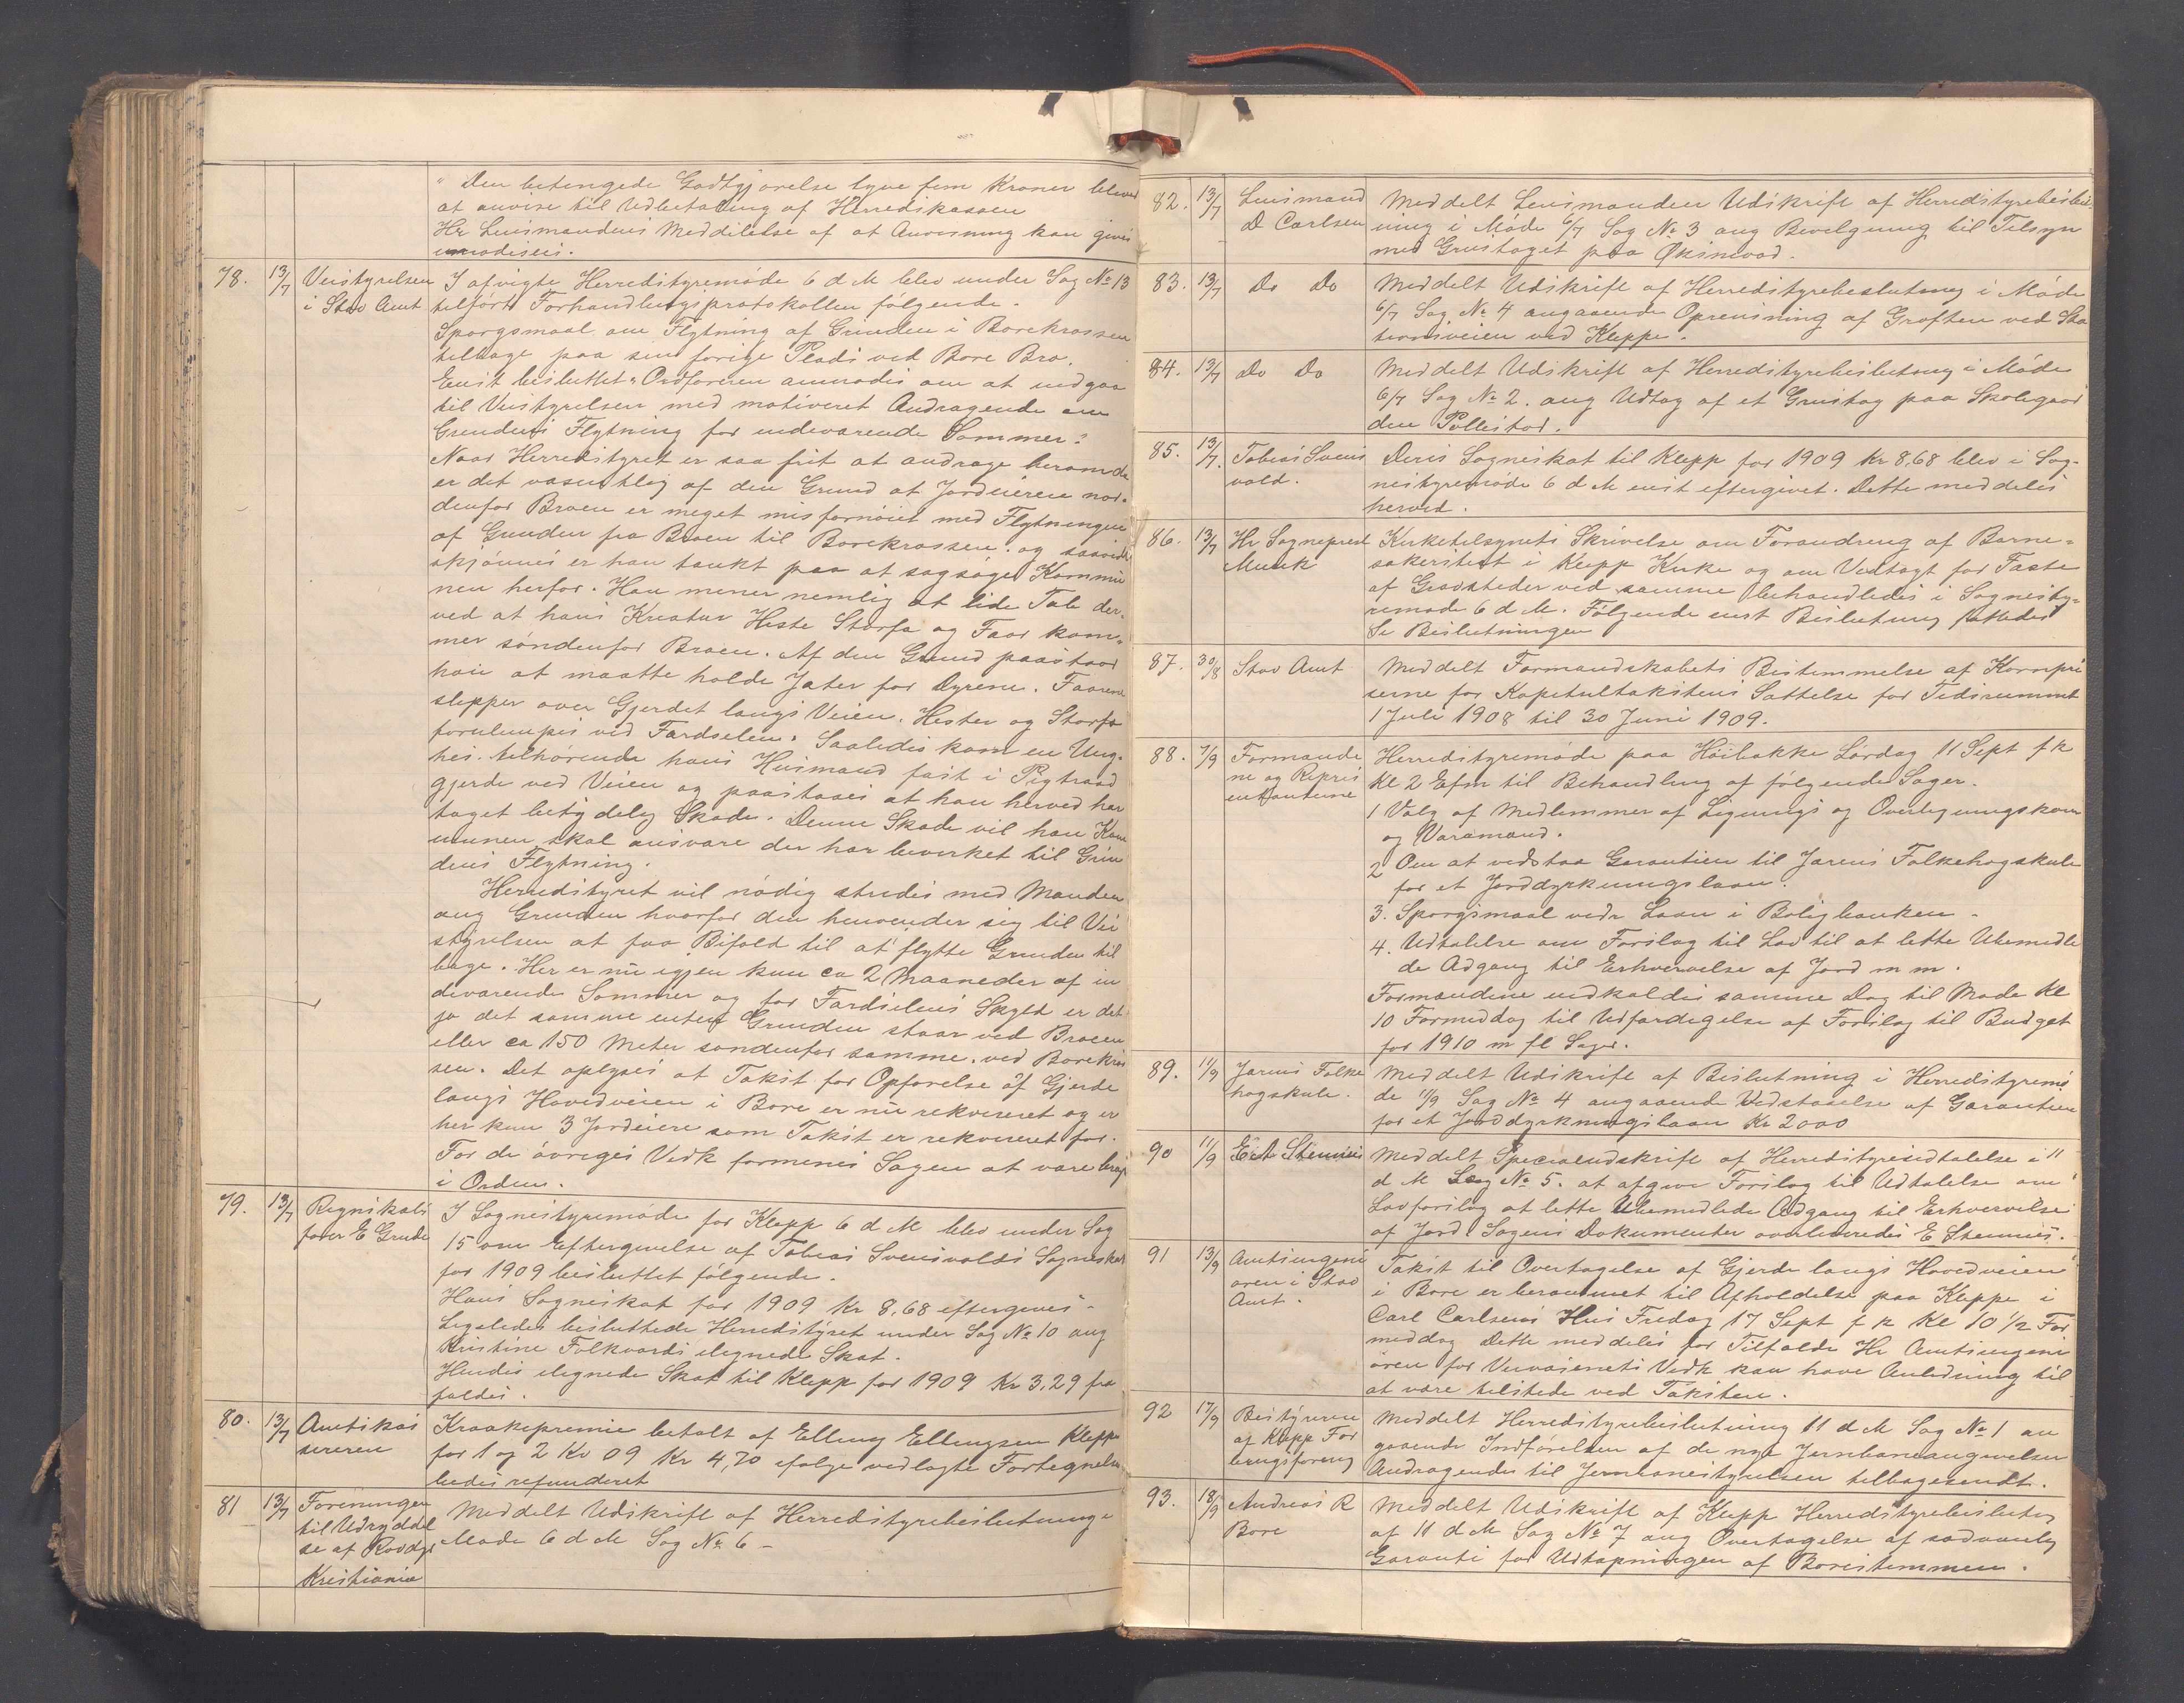 " Den betingede Godtgjørelse tyve fem Kroner blever
at anvise til Udbetaling af Herredskassen
Hr Lensmandens Meddelelse af at Anvisning kan gives
imødesees.
78. 13/7 Veistyrelsen i Stav Amt
I afvigte Herredsstyremøde 6 d M blev under Sag No 13
tilført Forhandlingsprotokollen følgende.
Spørgsmaal om Flytning af Grinden i Borekrossen
tilbage paa sin forige Plads ved Bore Bro.
Enst besluttet "Ordføreren anmodes om at indgaa
til Veistyrelsen med motiveret Andragende om
Grindens Flytning for indeværende Sommer."
Naar Herredstyret er saa frit at andrage herom da
er det væsentlig af den Grund at Jordeieren nor-
denfor Broen er meget misfornøiet med Flytningen
af Grinden fra Broen til Borekrossen. og saavidt
skjønnes er han tænkt paa at sagsøge Kommu
nen herfor. Han mener nemlig at lide Tab der-
ved at hans Kreatur Heste Storfæ og Faar kom-
mer søndenfor Broen. Af den Grund paastaar
han at maatte holde Jæter for Dyrene. Faarene
slepper over Gjerdet langs Veien. Hester og Storfæ
forulempes ved Færdselen. Saaledes kom en Ung-
hes. tilhørende hans Husmand fast i Pigtraad
gjerde ved Veien og paastaaes at han herved har
taget betydelig Skade. Denne Skade vil han Kom
munen skal ansvare der har bevirket til Grin
dens Flytning.
Herredstyret vil nødig strides med Manden
ang Grinden hvorfor den henvender sig til Vei
styrelsen at faa Bifald til at flytte Grinden til
bage. Her er nu igjen kun ca 2 Maaneder af in
deværende Sommer og for Færdselens Skyld er det
jo det samme enten Grinden staar ved Broen
eller ca 150 Meter søndenfor samme. ved Borekros
sen. Det oplyses at Takst for Opførelse af Gjerde
langs Hovedveien i Bore er nu rekvireret og er
her kun 3 Jordeiere som Takst er rekvireret for.
For de øvriges Vedk formenes Sagen at være bragt
i Orden.
79. 13/7 Regnskabs fører E Grude
I Sognestyremøde for Klepp 6 d M blev under Sag
15 om Eftergivelse af Tobias Svensvolds Sogneskat
for 1909 besluttet følgende.
Hans Sogneskat for 1909 Kr 8,68 eftergives -
Ligeledes besluttede Herredstyret under Sag No 10 ang
Kristine Folkvords ilignede Skat.
Hendes ilignede Skat til Klepp for 1909 Kr 3,29 fra
faldes.
80. 13/7 Amtskas sereren
Kraakepremie betalt af Elling Ellingsen Kleppe
for 1 og 2 Kv 09 Kr 4,70 ifølge vedlagte Fortegnelse
bedes refunderet
81 13/7 Foreningen til Udryddel se af Rovdyr Kristiania
Meddelt Udskrift af Herredstyrebeslutning i
Møde 6 d M Sag No 6 -
82. 13/7 Lensmand D Carlsen
Meddelt Lensmanden Udskrift af Herredstyrebeslut-
ning i Møde 6/7 Sag No 3 ang Bevilgning til Tilsyn
med Grustaget paa Øksnevad.
83. 13/7 Do Do
Meddelt Udskrift af Herredstyrebeslutning i Møde
6/7 Sag No 4 angaaende Oprensning af Grøften ved Sta
tionsveien ved Kleppe.
84. 13/7 Do Do
Meddelt Udskrift af Herredstyrebeslutning i Møde
6/7 Sag No 2. ang Udtag af et Grustag paa Skolegaar
den Pollestad.
85. 13/7. Tobias Svens vold.
Deres Sogneskat til Klepp for 1909 Kr 8,68 blev i Sog-
nestyremøde 6 d M enst eftergivet. Dette meddeles
herved.
86. 13/7 Hr Sogneprest Munk
Kirketilsynets Skrivelse om Forandring af Barne-
sakeristiet i Klepp Kirke og om Vedtægt for Fæste
af Gravsteder ved samme behandledes i Sognesty-
remøde 6 d M. Følgende enst Beslutning fattedes
Se Beslutningen
87. 30/8 Stav Amt
Meddelt Formandskabets Bestemmelse af Kornpri
serne for Kapitultakstens Sættelse for Tidsrummet
1 Juli 1908 til 30 Juni 1909.
88. 7/9 Formænde ne og Repræs entanterne
Herredstyremøde paa Høibakke Lørdag 11 Sept f k
Kl 2 Efm til Behandling af følgende Sager.
1 Valg af Medlemmer af Lignings og Overligningskom
og Varamænd.
2 Om at vedstaa Garantien til Jærens Folkehøgskule
for et Jorddyrkningslaan.
3. Spørgsmaal vedr Laan i Boligbanken -
4. Udtalelse om Forslag til Lov til at lette Ubemidle
de Adgang til Erhvervelse af Jord m m.
Formændene indkaldes samme Dag til Møde Kl
10 Formiddag til Udfærdigelse af Forslag til Budget
for 1910 m fl Sager.
89. 11/9 Jærens Folke høgskule.
Meddelt Udskrift af Beslutning i Herredstyremø
de 11/9 Sag No 4 angaaende Vedstaaelse af Garantien
for et Jorddyrkningslaan Kr 2000
90 11/9 E Stennes
Meddelt Specialudskrift af Herredstyresudtalelse i 11
d M Sag No 5. at afgive Forslag til Udtalelse om
Lovforslag at lette Ubemidlede Adgang til Erhvervelse
af Jord Sagens Dokumenter overleveredes E Stennes.
91 13/9 Amtsingeni øren i Stav Amt.
Takst til Overtagelse af Gjerde langs Hovedveien
i Bore er berammet til Afholdelse paa Kleppe i
Carl Carlsens Hus Fredag 17 Sept f k Kl 10 1/2 For
middag Dette meddeles for Tilfælde Hr Amtsingeni
øren for Veivæsenets Vedk kan have Anledning til
at være tilstede ved Taksten.
92 17/9 Bestyreren af Klepp For brugsforening
Meddelt Herredstyrebeslutning 11 d M Sag No 1 an
gaaende Indførelsen af de nye Jernbaneangivelser
Andragendet til Jernbanestyrelsen tilbagesendt.
93. 18/9 Andreas R Bore
Meddelt Udskrift af Klepp Herredstyrebeslutng
af 11 d M Sag No 7 ang Overtagelse af sædvanlig
Garanti for Udtapningen af Borestemmen.